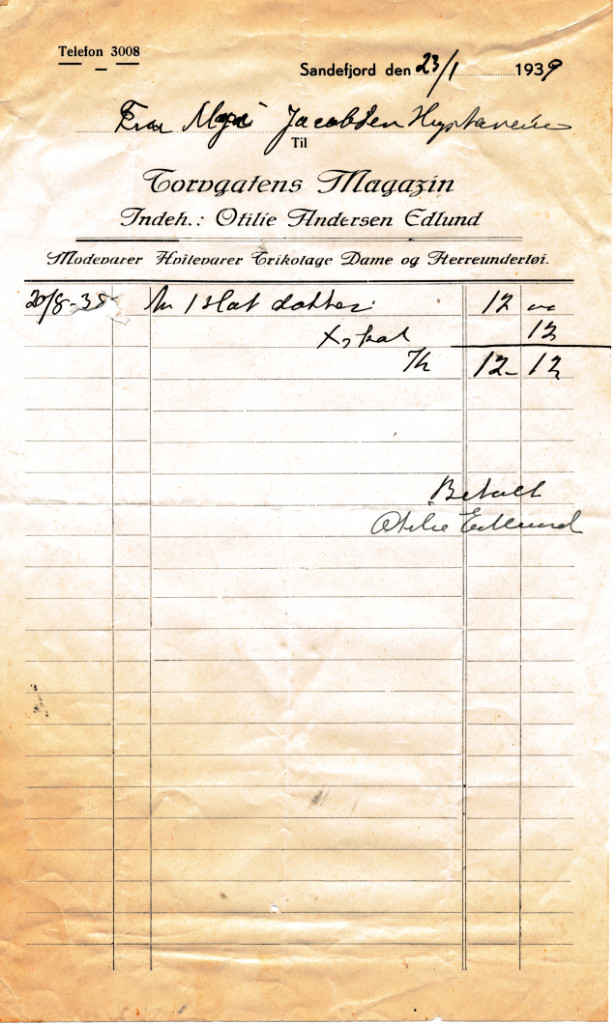 Telefon 3008
Sandefjord den 23/1 1939
Jacobsen
Til
Torvgatens Magazin
Indeh.: Otilie Andersen Edlund
Modevarer Hvitevarer Trikotage Dame og Herreundertøi.
20/8-38 1 12
12
12-12
Betalt
Otilie Edlund